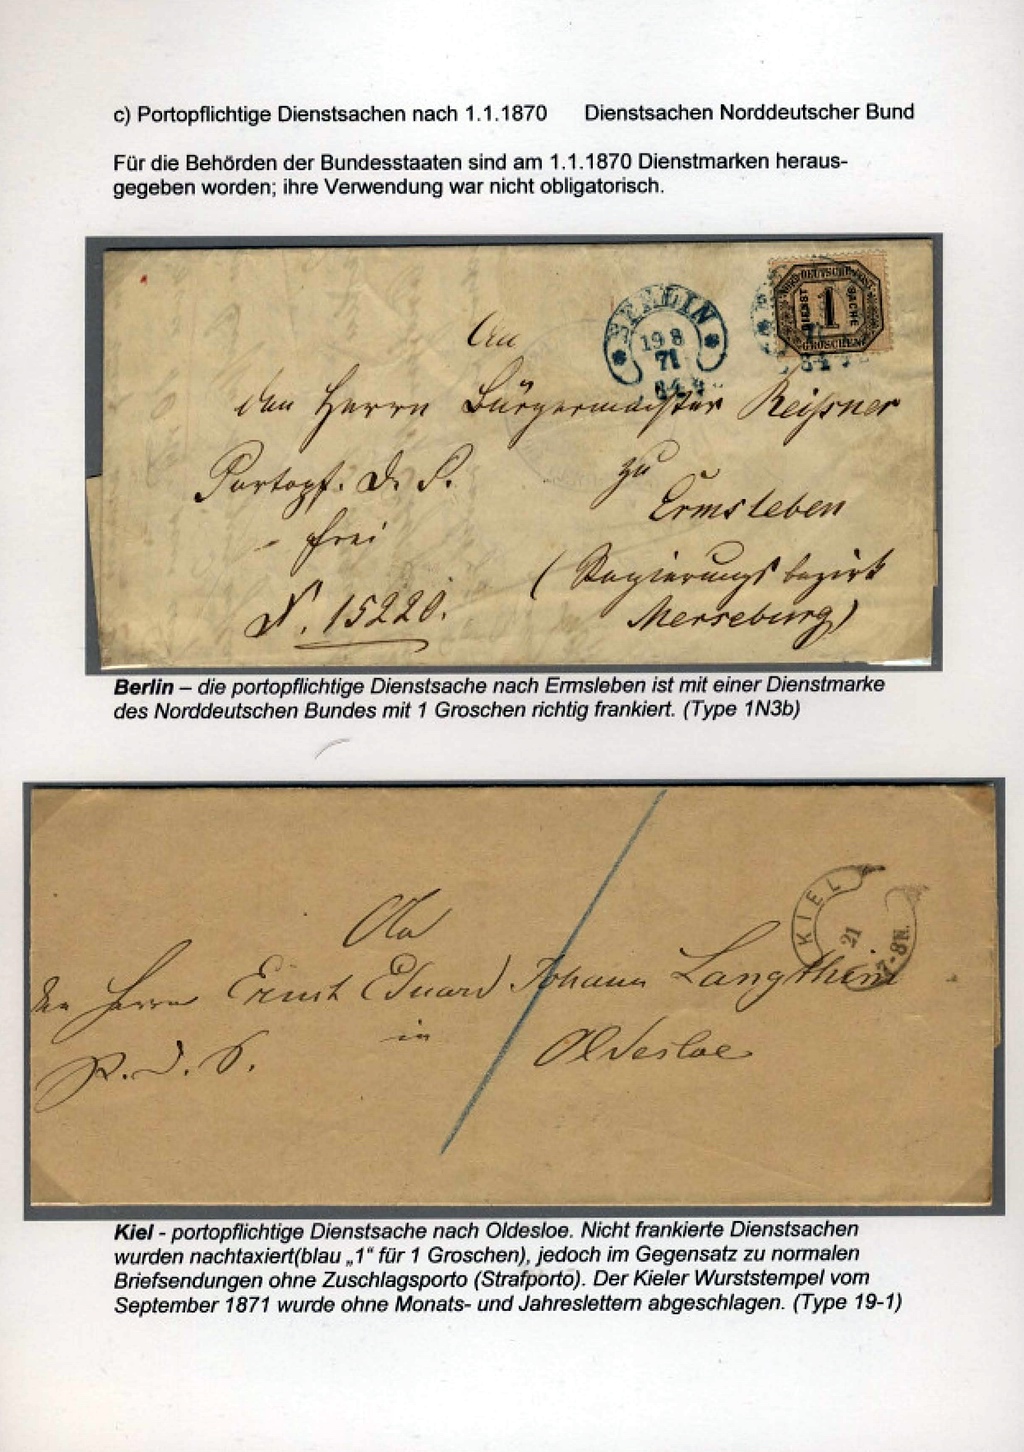 c) Portopflichtige Dienstsachen nach 1.1.1870 Dienstsachen Norddeutscher Bund
Für die Behörden der Bundesstaaten sind am 1.1.1870 Dienstmarken heraus-
gegeben worden; ihre Verwendung war nicht obligatorisch.
BERLIN
19 8
71
NORDDEUTSCHE POST
DIENST 1 SACHE
GROSCHEN
An
den Herrn Bürgermeister Reissner
Portopf. D. S. zu
frei Ermsleben
N. 15220. (Regierungsbezirk
Merseburg)
Berlin – die portopflichtige Dienstsache nach Ermsleben ist mit einer Dienstmarke
des Norddeutschen Bundes mit 1 Groschen richtig frankiert. (Type 1N3b)
KIEL
21
7-8N.
An
den Herrn Ernst Eduard Johann Langthim
P. D. S. in Oldesloe
Kiel - portopflichtige Dienstsache nach Oldesloe. Nicht frankierte Dienstsachen
wurden nachtaxiert(blau „1“ für 1 Groschen), jedoch im Gegensatz zu normalen
Briefsendungen ohne Zuschlagsporto (Strafporto). Der Kieler Wurststempel vom
September 1871 wurde ohne Monats- und Jahreslettern abgeschlagen. (Type 19-1)